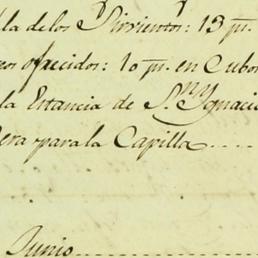 la de los Sirvientos: 13 p.
ofrecidos: 10 p. en Cubo
la Estancia de S.n Ygnacio
era para la Capilla....
Junio....